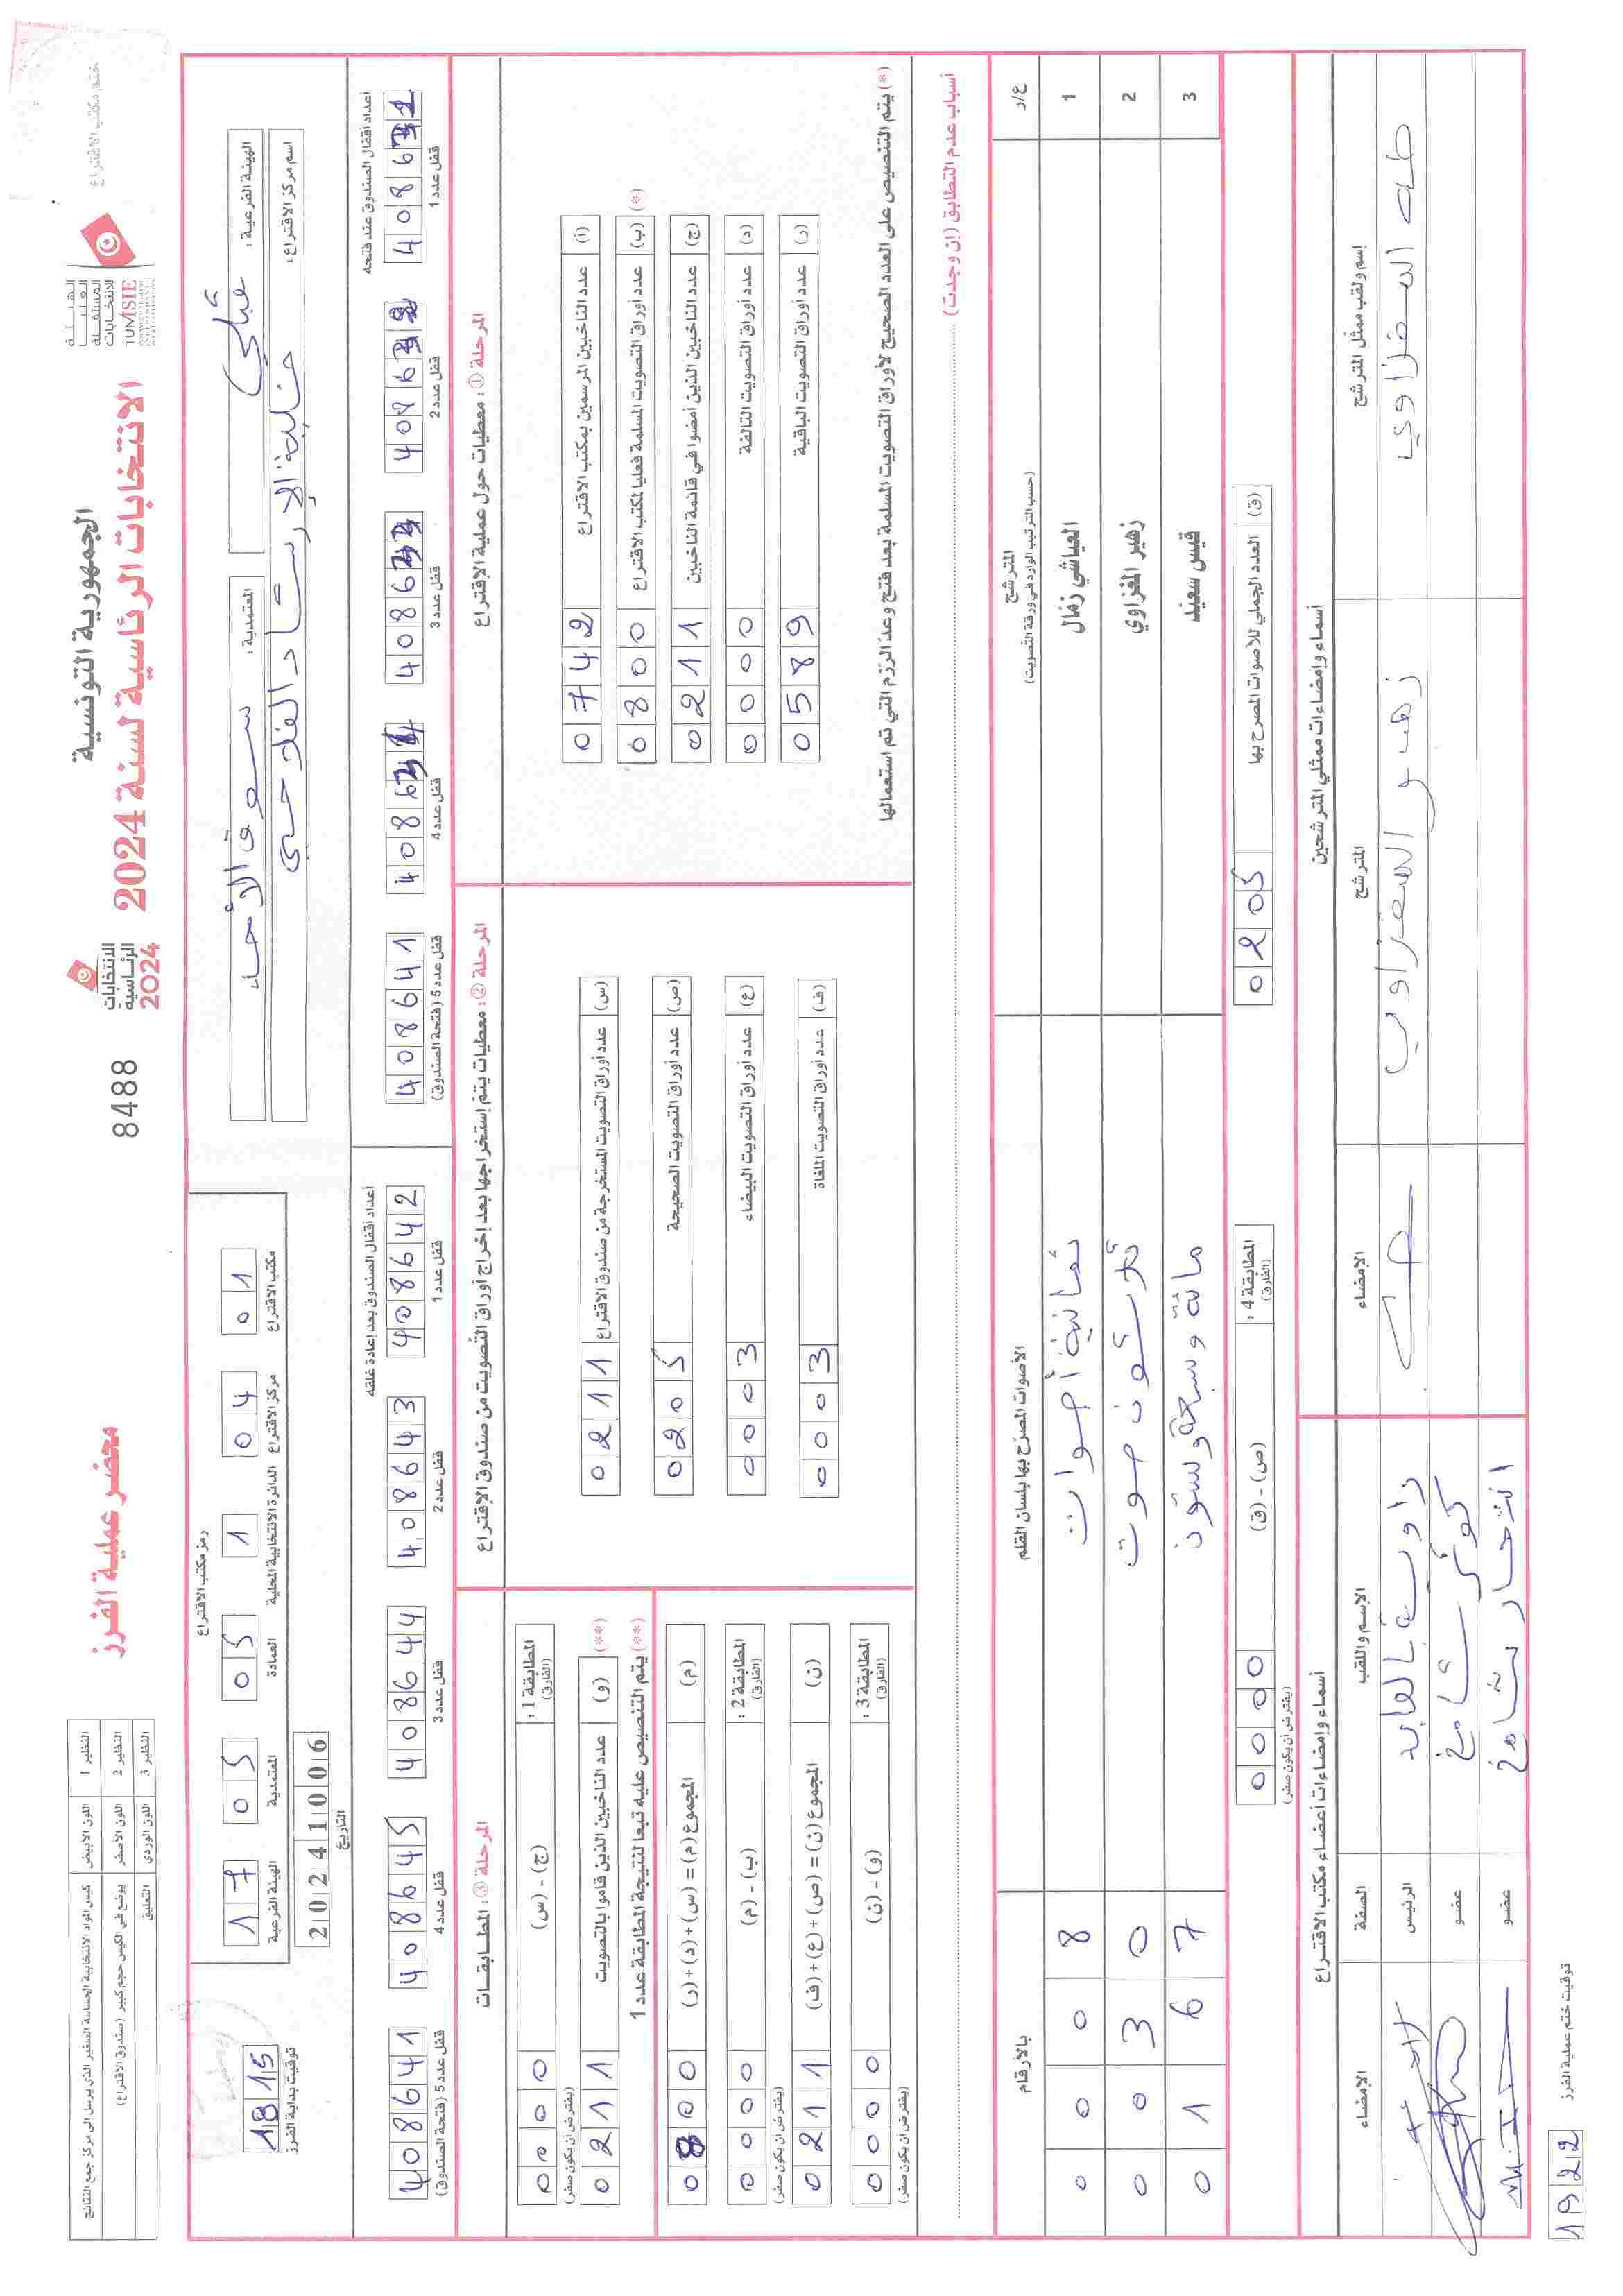 ختم مكتب الاقتراع
الهيئة
العليا
المستقلة
للانتخابات
TUNISIE
الجمهورية التونسية
الانتخابات الرئاسية لسنة 2024
الانتخابات
الرئاسية
2024
8488
محضر عملية الفرز
النظير 1 اللون الأبيض كيس المواد الانتخابية الحساسة الصغير الذي يرسل إلى مركز جمع النتائج
النظير 2 اللون الأصفر يوضع في الكيس حجم كبير (صندوق الاقتراع)
النظير 3 اللون الوردي التعليق
الهيئة الفرعية : قبلي
المعتمدية : سوق الأحد
اسم مركز الاقتراع : خلية الإرشاد الفلاحي
رمز مكتب الاقتراع
مكتب الاقتراع 01
مركز الاقتراع 04
الدائرة الانتخابية المحلية 1
العمادة 05
المعتمدية 05
الهيئة الفرعية 17
20241006
التاريخ
1815
توقيت بداية الفرز
أعداد أقفال الصندوق عند فتحه
قفل عدد 1
قفل عدد 2
قفل عدد 3
قفل عدد 4
408641
قفل عدد 5 (فتحة الصندوق)
أعداد أقفال الصندوق بعد إعادة غلقه
408642
قفل عدد 1
408643
قفل عدد 2
408644
قفل عدد 3
408645
قفل عدد 4
408641
قفل عدد 5 (فتحة الصندوق)
المرحلة ① : معطيات حول عملية الاقتراع
(أ) عدد الناخبين المرسمين بمكتب الاقتراع 0742
(ب) عدد أوراق التصويت المسلمة فعليا لمكتب الاقتراع 0800 (*)
(ج) عدد الناخبين الذين أمضوا في قائمة الناخبين 0211
(د) عدد أوراق التصويت التالفة 0000
(ر) عدد أوراق التصويت الباقية 0589
(*) يتم التنصيص على العدد الصحيح لأوراق التصويت المسلمة بعد فتح وعد الرزم التي تم استعمالها
المرحلة ② : معطيات يتم إستخراجها بعد إخراج أوراق التصويت من صندوق الاقتراع
(س) عدد أوراق التصويت المستخرجة من صندوق الاقتراع 0211
(ص) عدد أوراق التصويت الصحيحة 0205
(ع) عدد أوراق التصويت البيضاء 0003
(ف) عدد أوراق التصويت الملغاة 0003
المرحلة ③ : المطابقات
المطابقة 1 : (الفارق) (ج) - (س) 0000
(يفترض أن يكون صفر)
(**) (و) عدد الناخبين الذين قاموا بالتصويت 0211
(**) يتم التنصيص عليه تبعا لنتيجة المطابقة عدد 1
(م) المجموع (م) = (س) + (د) + (ر) 0800
المطابقة 2 : (الفارق) (ب) - (م) 0000
(يفترض أن يكون صفر)
(ن) المجموع (ن) = (ص) + (ع) + (ف) 0211
المطابقة 3 : (الفارق) (و) - (ن) 0000
(يفترض أن يكون صفر)
أسباب عدم التطابق (إن وجدت)
ع/ر المترشح الأصوات المصرّح بها بلسان القلم بالأرقام
(حسب الترتيب الوارد في ورقة التصويت)
1 العياشي زمّال ثمانية أصوات 0008
2 زهير المغزاوي ثلاثون صوت 0030
3 قيس سعيّد مائة وسبعة وستون 0167
(ق) العدد الجملي للأصوات المصرح بها 0205
المطابقة 4 : (الفارق) (ص) - (ق) 0000
(يفترض أن يكون صفر)
أسماء وإمضاءات ممثلي المترشحين
اسم ولقب ممثل المترشح المترشح الإمضاء
زهير المغزاوي
أسماء وإمضاءات أعضاء مكتب الاقتراع
الإسم واللقب الصفة الإمضاء
الرئيس
عضو
عضو
توقيت ختم عملية الفرز
1922